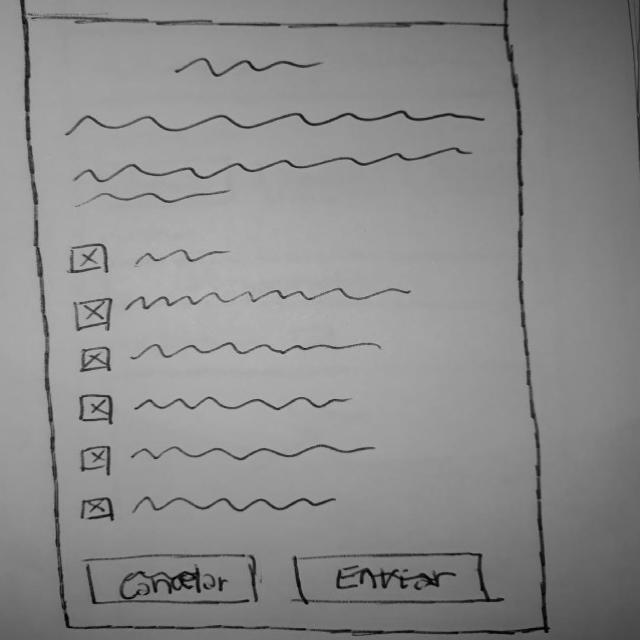 Cancelar
Enviar